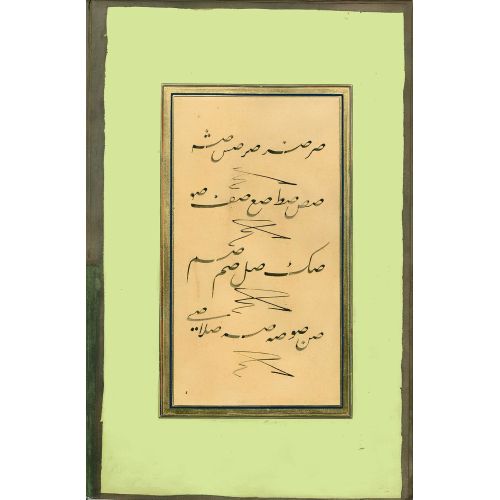 صر صر صس
صص صط صع صف
صک صل صم صم
صن صو صه صه صلا صی